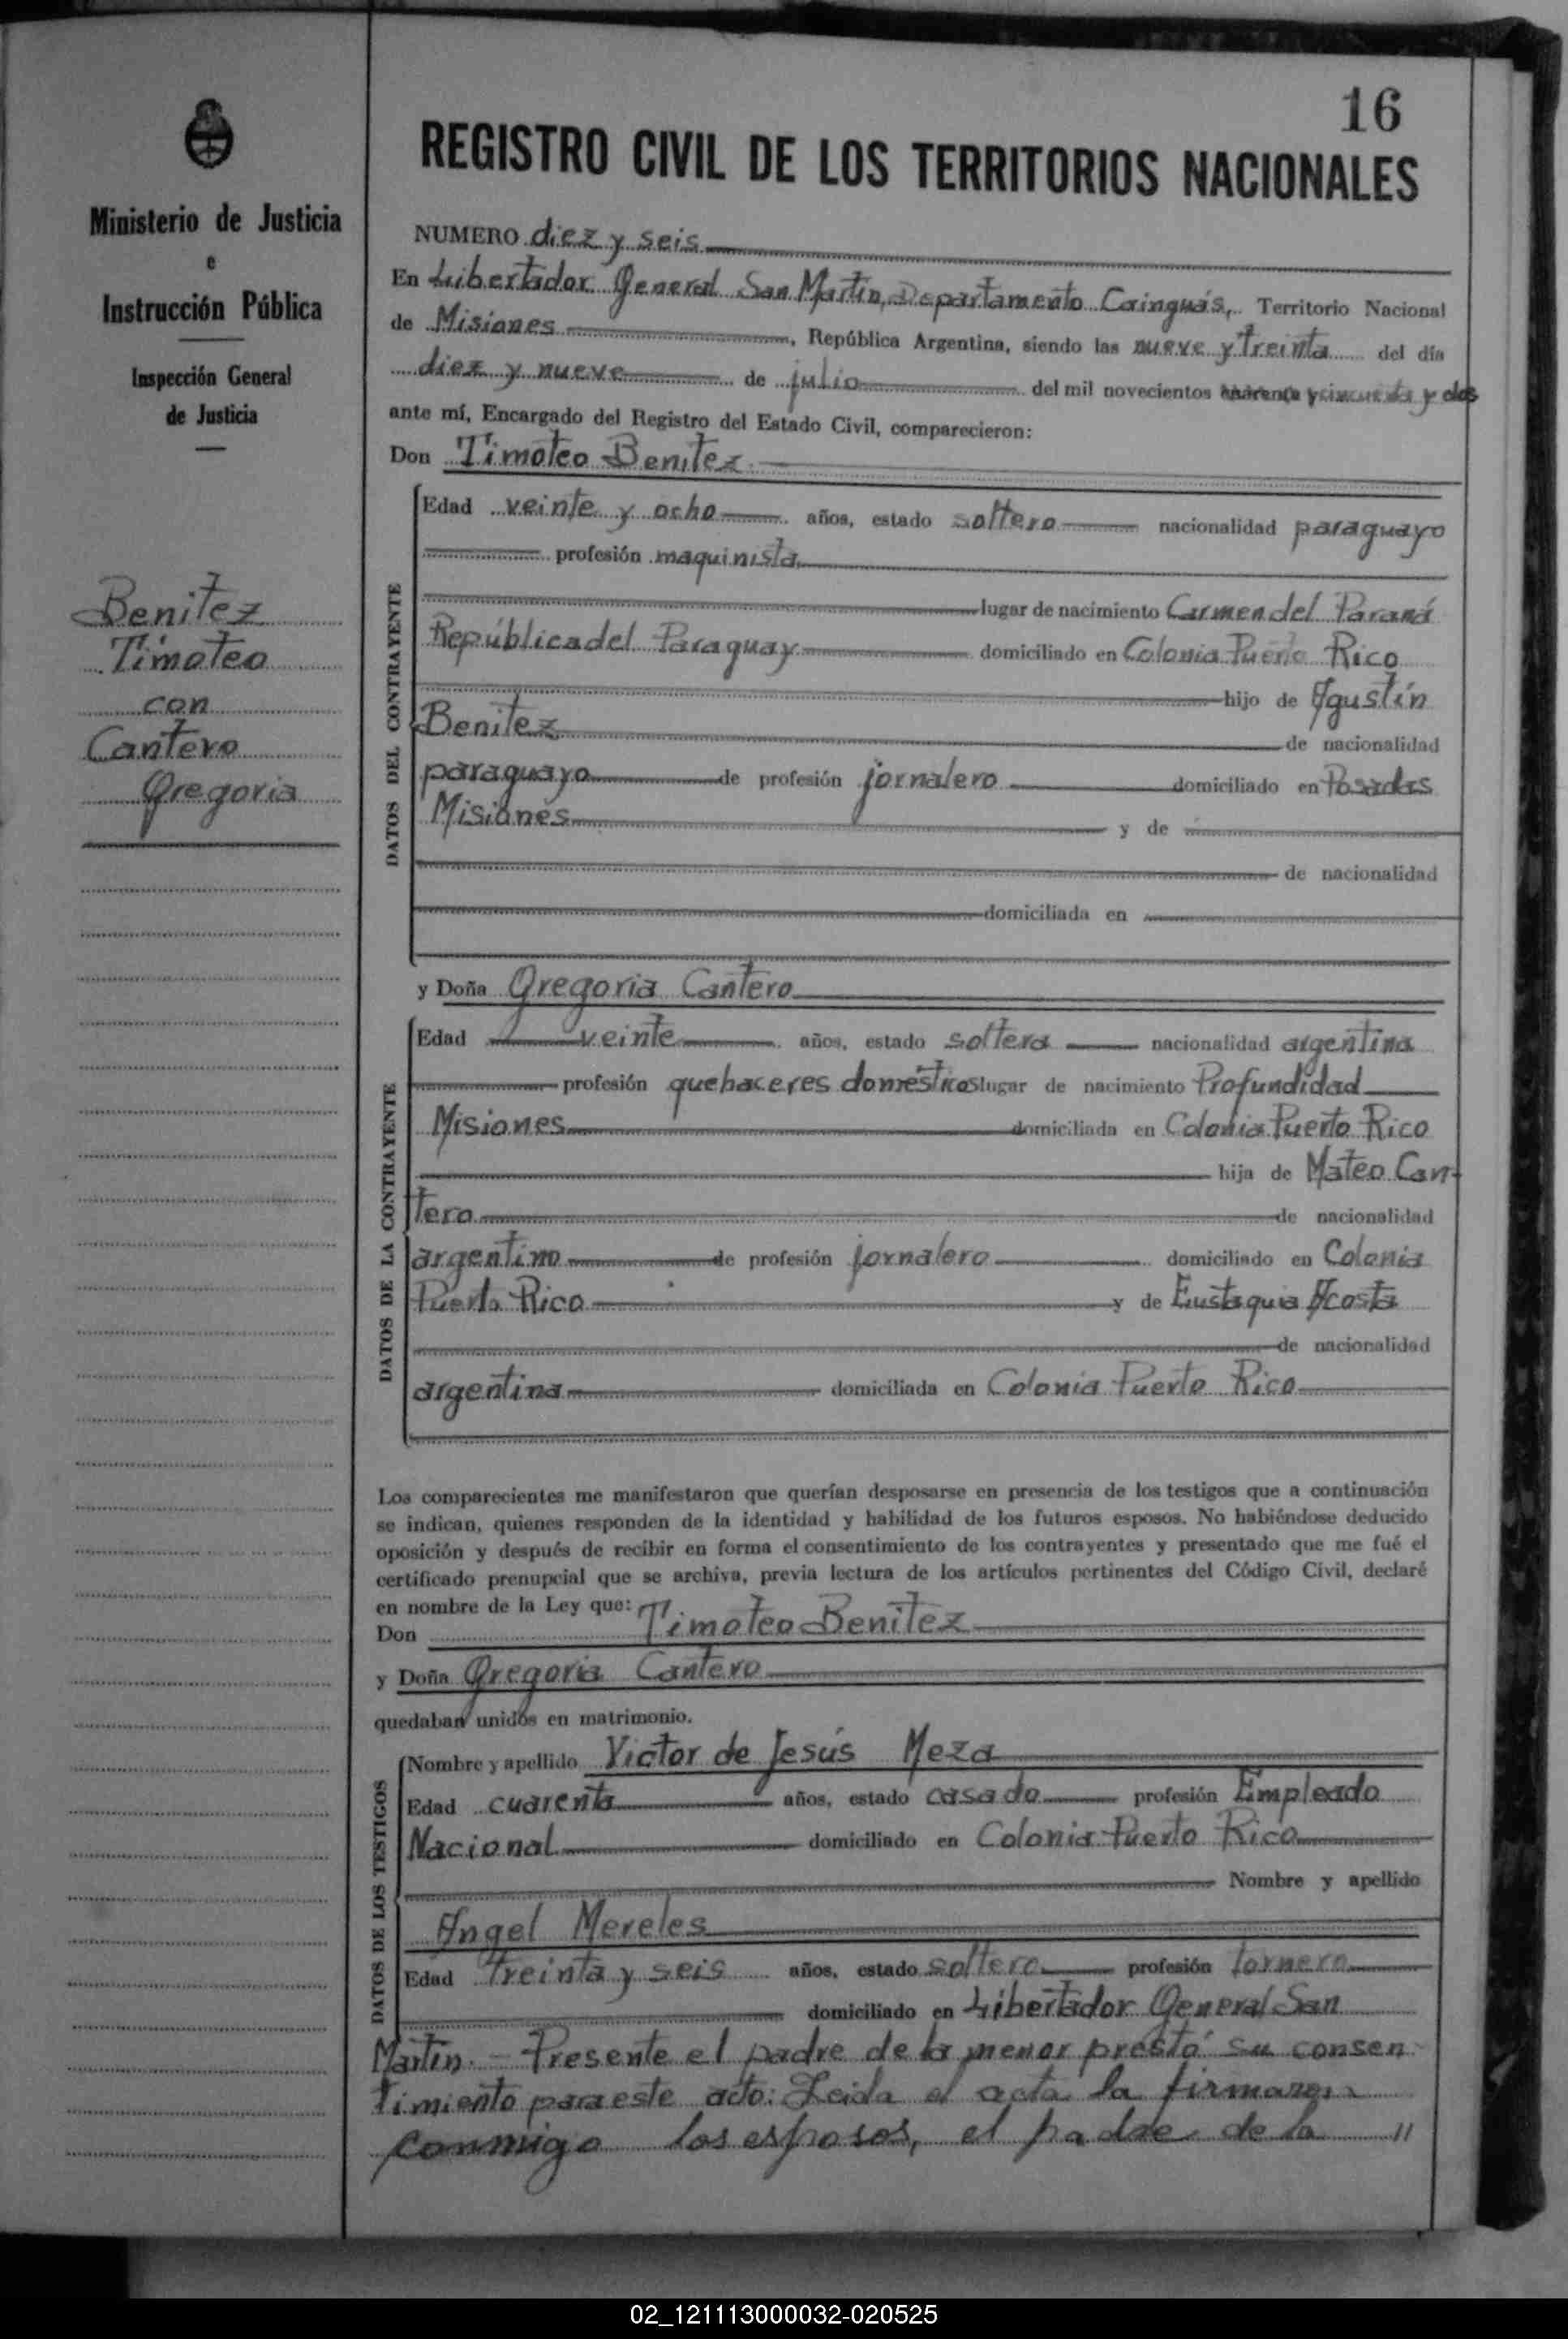 16
REGISTRO CIVIL DE LOS TERRITORIOS NACIONALES
Ministerio de Justicia
e
Instrucción Pública
Inspección General
de Justicia
Benitez
Timoteo
con
Cantero
Gregoria
NUMERO diez y seis
En Libertador General San Martín, Departamento Cainguás, Territorio Nacional
de Misiones, República Argentina, siendo las nueve y treinta del día
diez y nueve de julio del mil novecientos cincuenta y dos
ante mí, Encargado del Registro del Estado Civil, comparecieron:
Don Timoteo Benitez
DATOS DEL CONTRAYENTE
Edad veinte y ocho años, estado soltero nacionalidad paraguayo
profesión maquinista
lugar de nacimiento Carmen del Paraná
República del Paraguay domiciliado en Colonia Puerto Rico
hijo de Agustín
Benitez de nacionalidad
paraguayo de profesión jornalero domiciliado en Posadas
Misiones y de
de nacionalidad
domiciliada en
y Doña Gregoria Cantero
DATOS DE LA CONTRAYENTE
Edad veinte años, estado soltera nacionalidad argentina
profesión quehaceres domésticos lugar de nacimiento Profundidad
Misiones domiciliada en Colonia Puerto Rico
hija de Mateo Can-
tero de nacionalidad
argentino de profesión jornalero domiciliado en Colonia
Puerto Rico y de Eustaquia Acosta
de nacionalidad
argentina domiciliada en Colonia Puerto Rico
Los comparecientes me manifestaron que querían desposarse en presencia de los testigos que a continuación
se indican, quienes responden de la identidad y habilidad de los futuros esposos. No habiéndose deducido
oposición y después de recibir en forma el consentimiento de los contrayentes y presentado que me fué el
certificado prenupcial que se archiva, previa lectura de los artículos pertinentes del Código Civil, declaré
en nombre de la Ley que:
Don Timoteo Benitez
y Doña Gregoria Cantero
quedaban unidos en matrimonio.
DATOS DE LOS TESTIGOS
Nombre y apellido Victor de Jesús Meza
Edad cuarenta años, estado casado profesión Empleado
Nacional domiciliado en Colonia Puerto Rico
Nombre y apellido
Angel Mereles
Edad treinta y seis años, estado soltero profesión tornero
domiciliado en Libertador General San
Martín. - Presente el padre de la menor prestó su consen
timiento para este acto: Leida el acta la firmaron
conmigo los esposos, el padre de la "
02_121113000032-020525